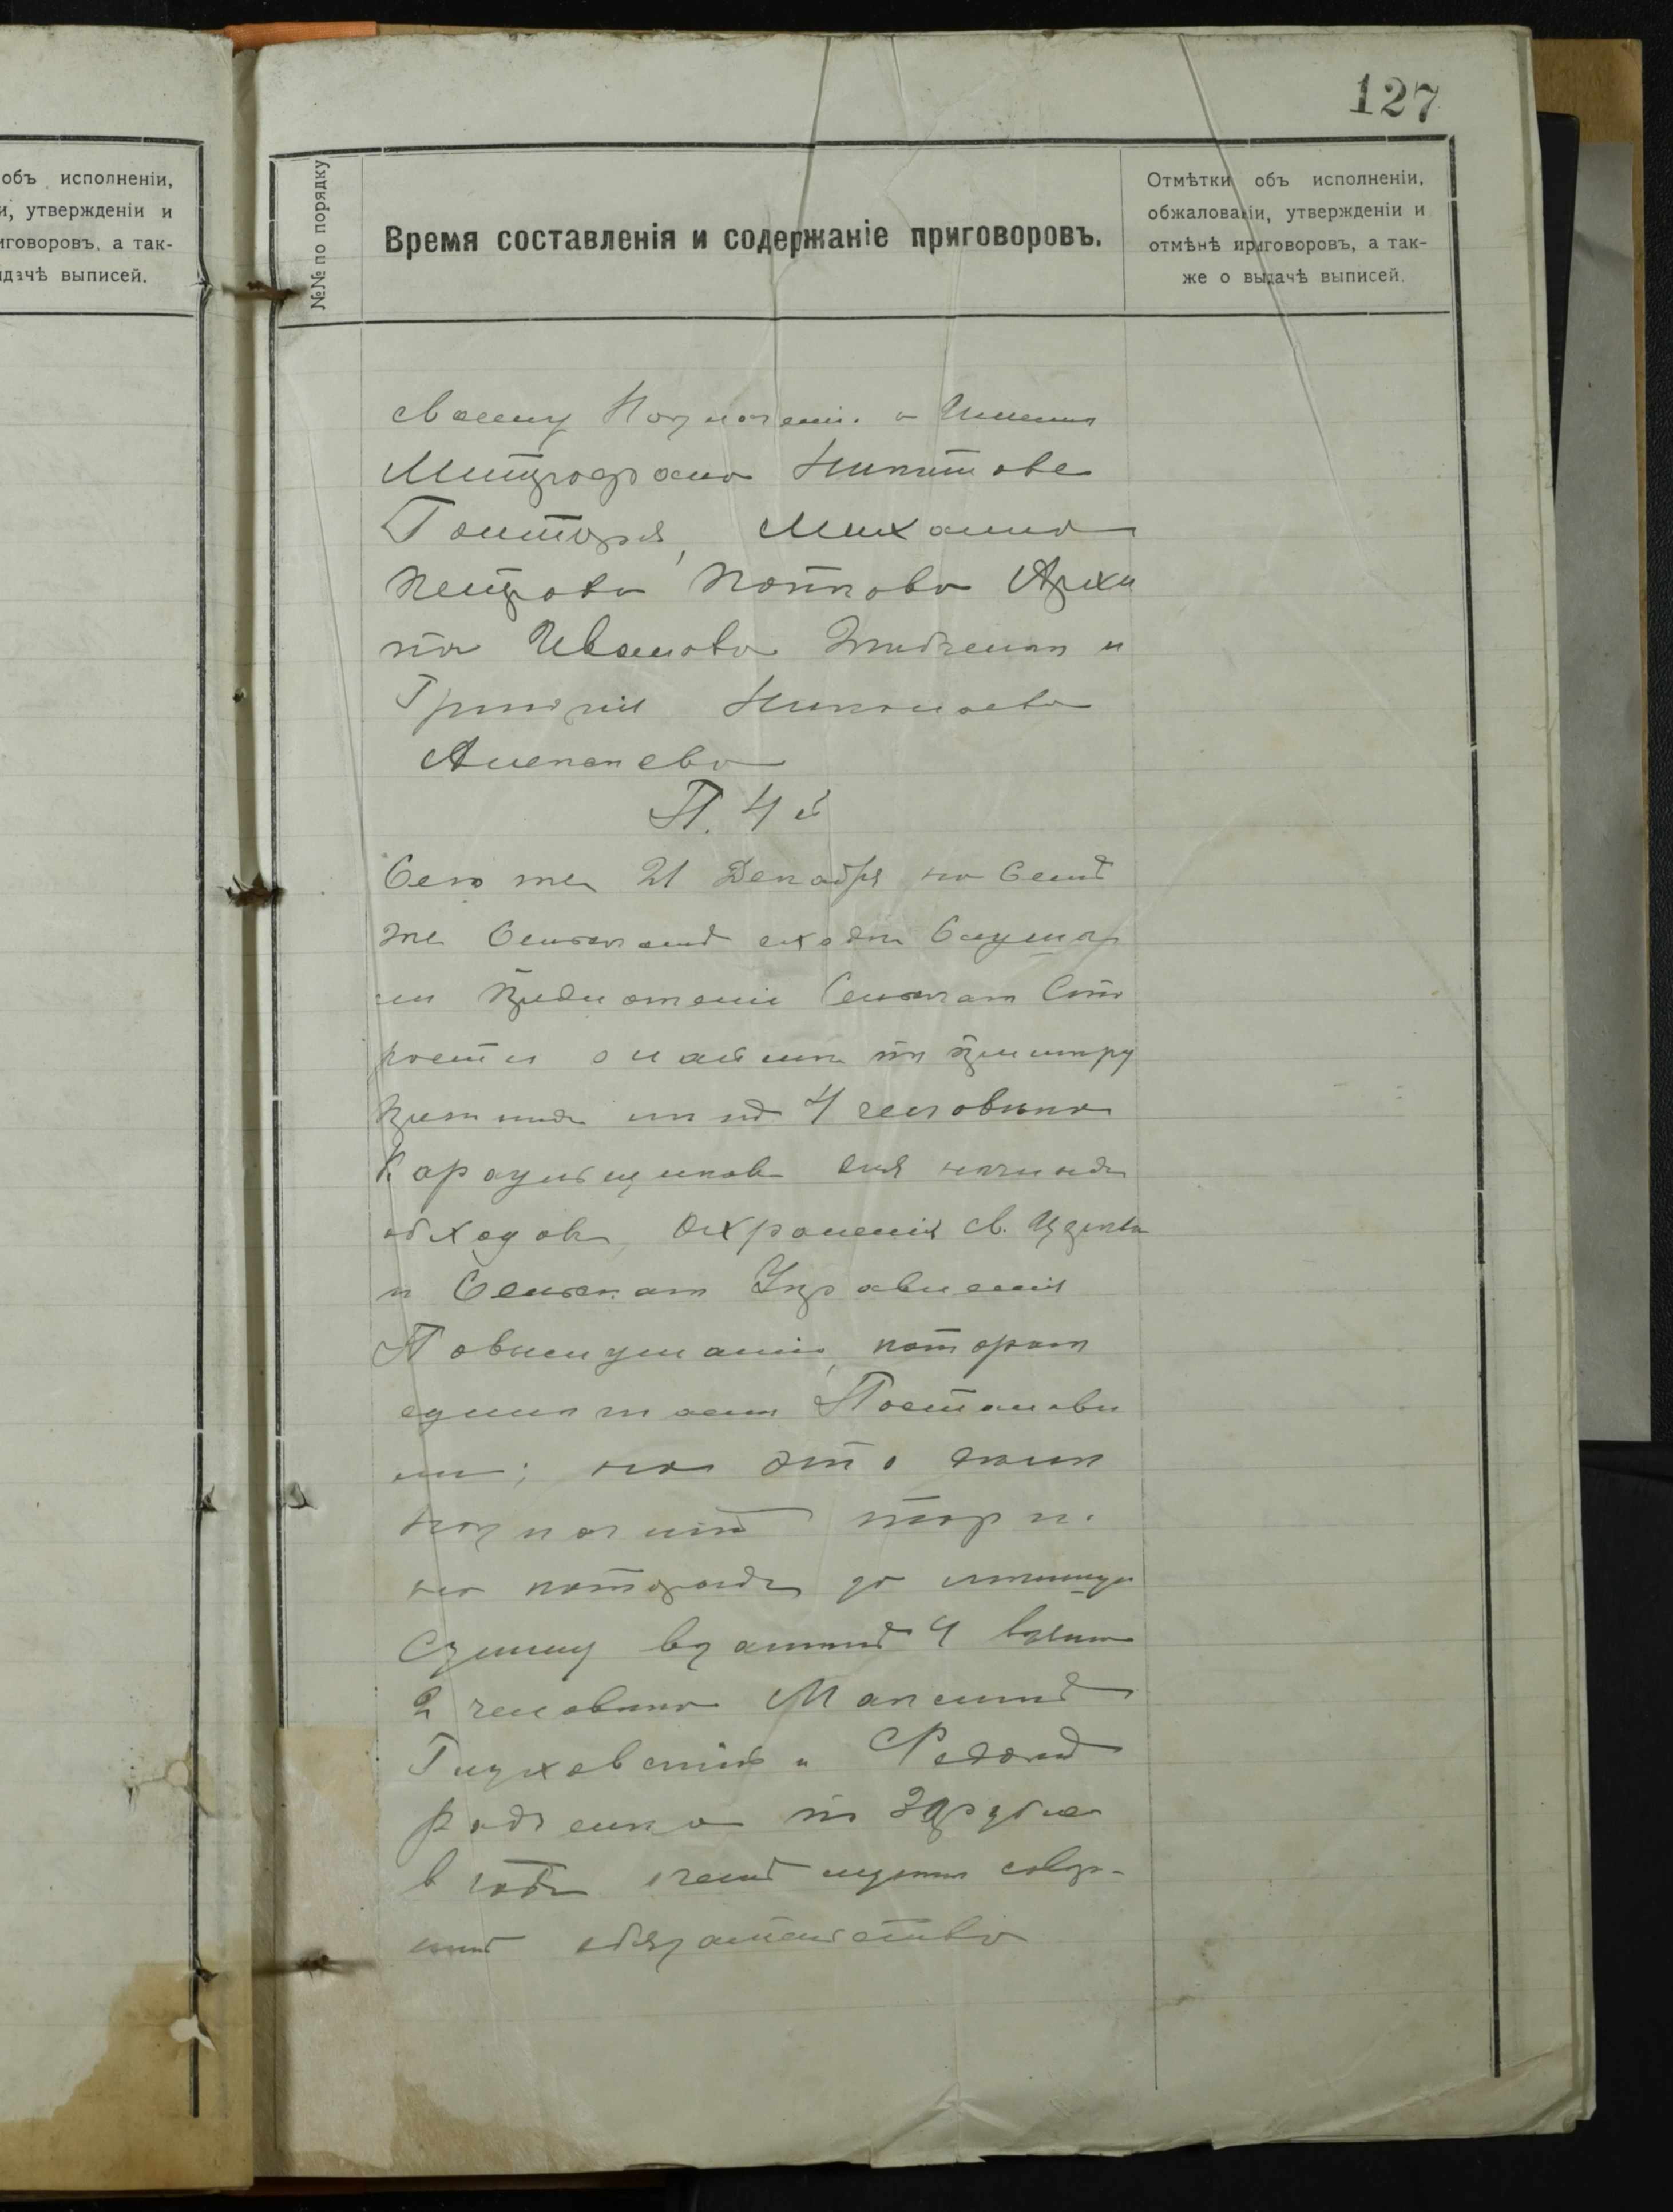 127
объ исполненіи,
и, утвержденіи и
иговоровъ, а так-
дачѣ выписей.
№№ по порядку
Время составленія и содержаніе приговоровъ.
Отмѣтки объ исполненіи,
обжалованіи, утвержденіи и
отмѣнѣ приговоровъ, а так-
же о выдачѣ выписей.
своему Назначенію а Именно
Митрофана Никитова
Гонтаря, Михаила
Петрова Попкова Архи
па Иванова и
Григорія Николаева
Алексеева
П. 4й
Сего же 21 Декабря на Семъ
же Сельскомъ сходе Слушар
ли Предложеніе Сельскаго Ста
росты о найме по примеру
4 человека
Караульщиковъ для ночныхъ
обходовъ, Охраненія св. Церкви
и Сельскаго Управленія
По выслушаніи, котораго
единогласно Постанови
ли; на это дело
назначить торги.
на которыхъ за
Сумму взялись
2 человека Максимъ
Глуховскій и Федоръ
Радченко по рубле
в годъ о чемъ
обязательство